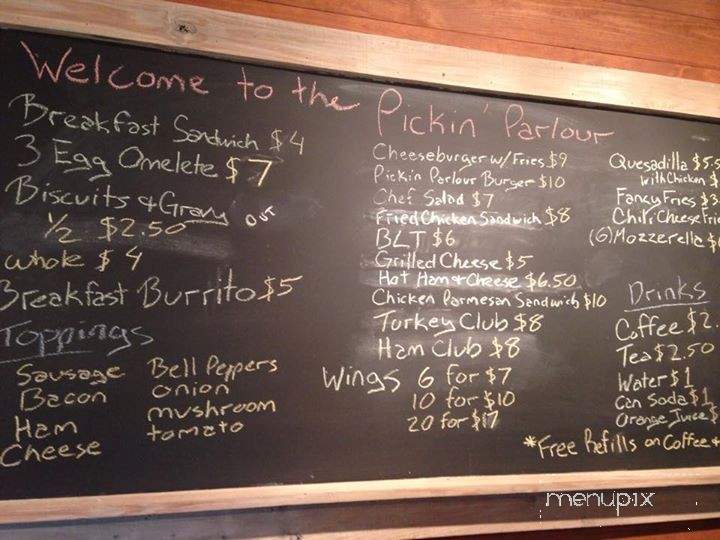 Welcome to the Pickin' Parlour
Breakfast Sandwich $4
3 Egg Omelete $7
Biscuits & Gravy OUT
1/2 $2.50
whole $4
Breakfast Burrito $5
Toppings
Sausage
Bacon
Ham
Cheese
Bell Peppers
onion
mushroom
tomato
Cheeseburger w/ Fries $9
Pickin Parlour Burger $10
Chef Salad $7
Fried Chicken Sandwich $8
BLT $6
Grilled Cheese $5
Hot Ham & Cheese $6.50
Chicken Parmesan Sandwich $10
Turkey Club $8
Ham Club $8
Wings 6 for $7
10 for $10
20 for $17
Quesadilla $5.5
with Chicken $
Fancy Fries $3.
Chili Cheese Frie
(6) Mozzerella $
Drinks
Coffee $2.
Tea $2.50
Water $1
Can Soda $1
Orange Juice $
*Free Refills on Coffee +
menupix